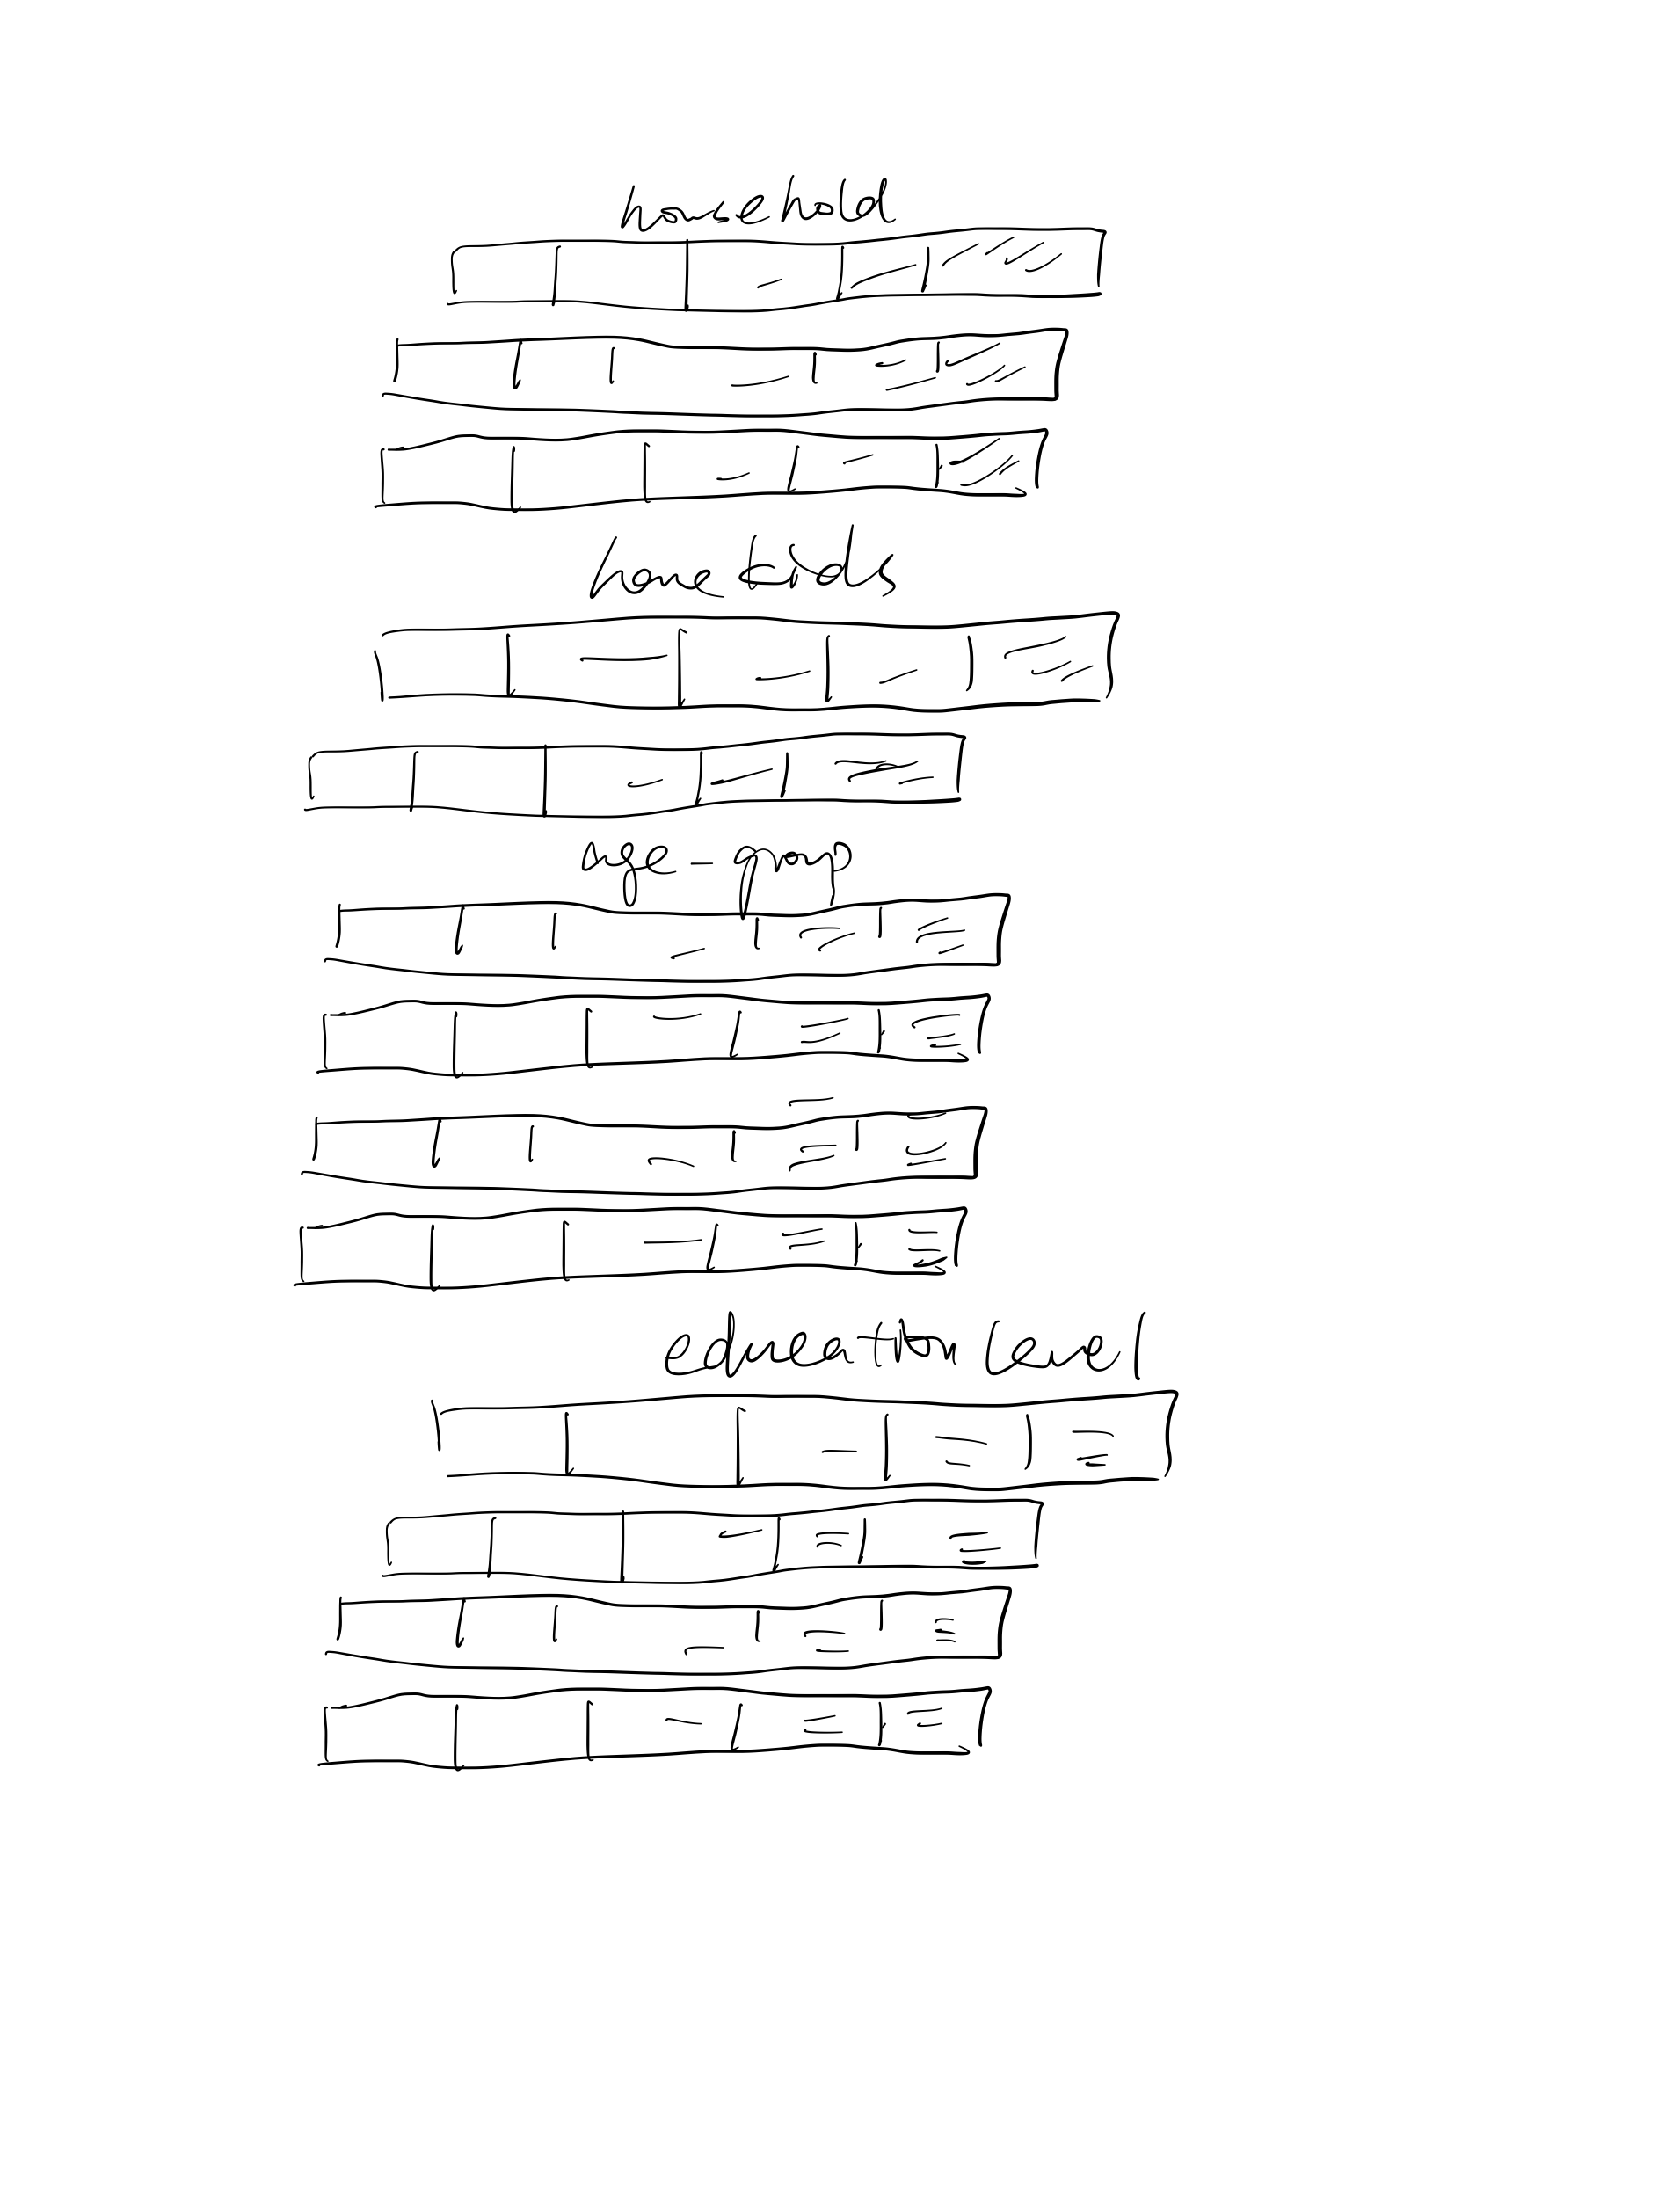 household
have kids
age-group
education level